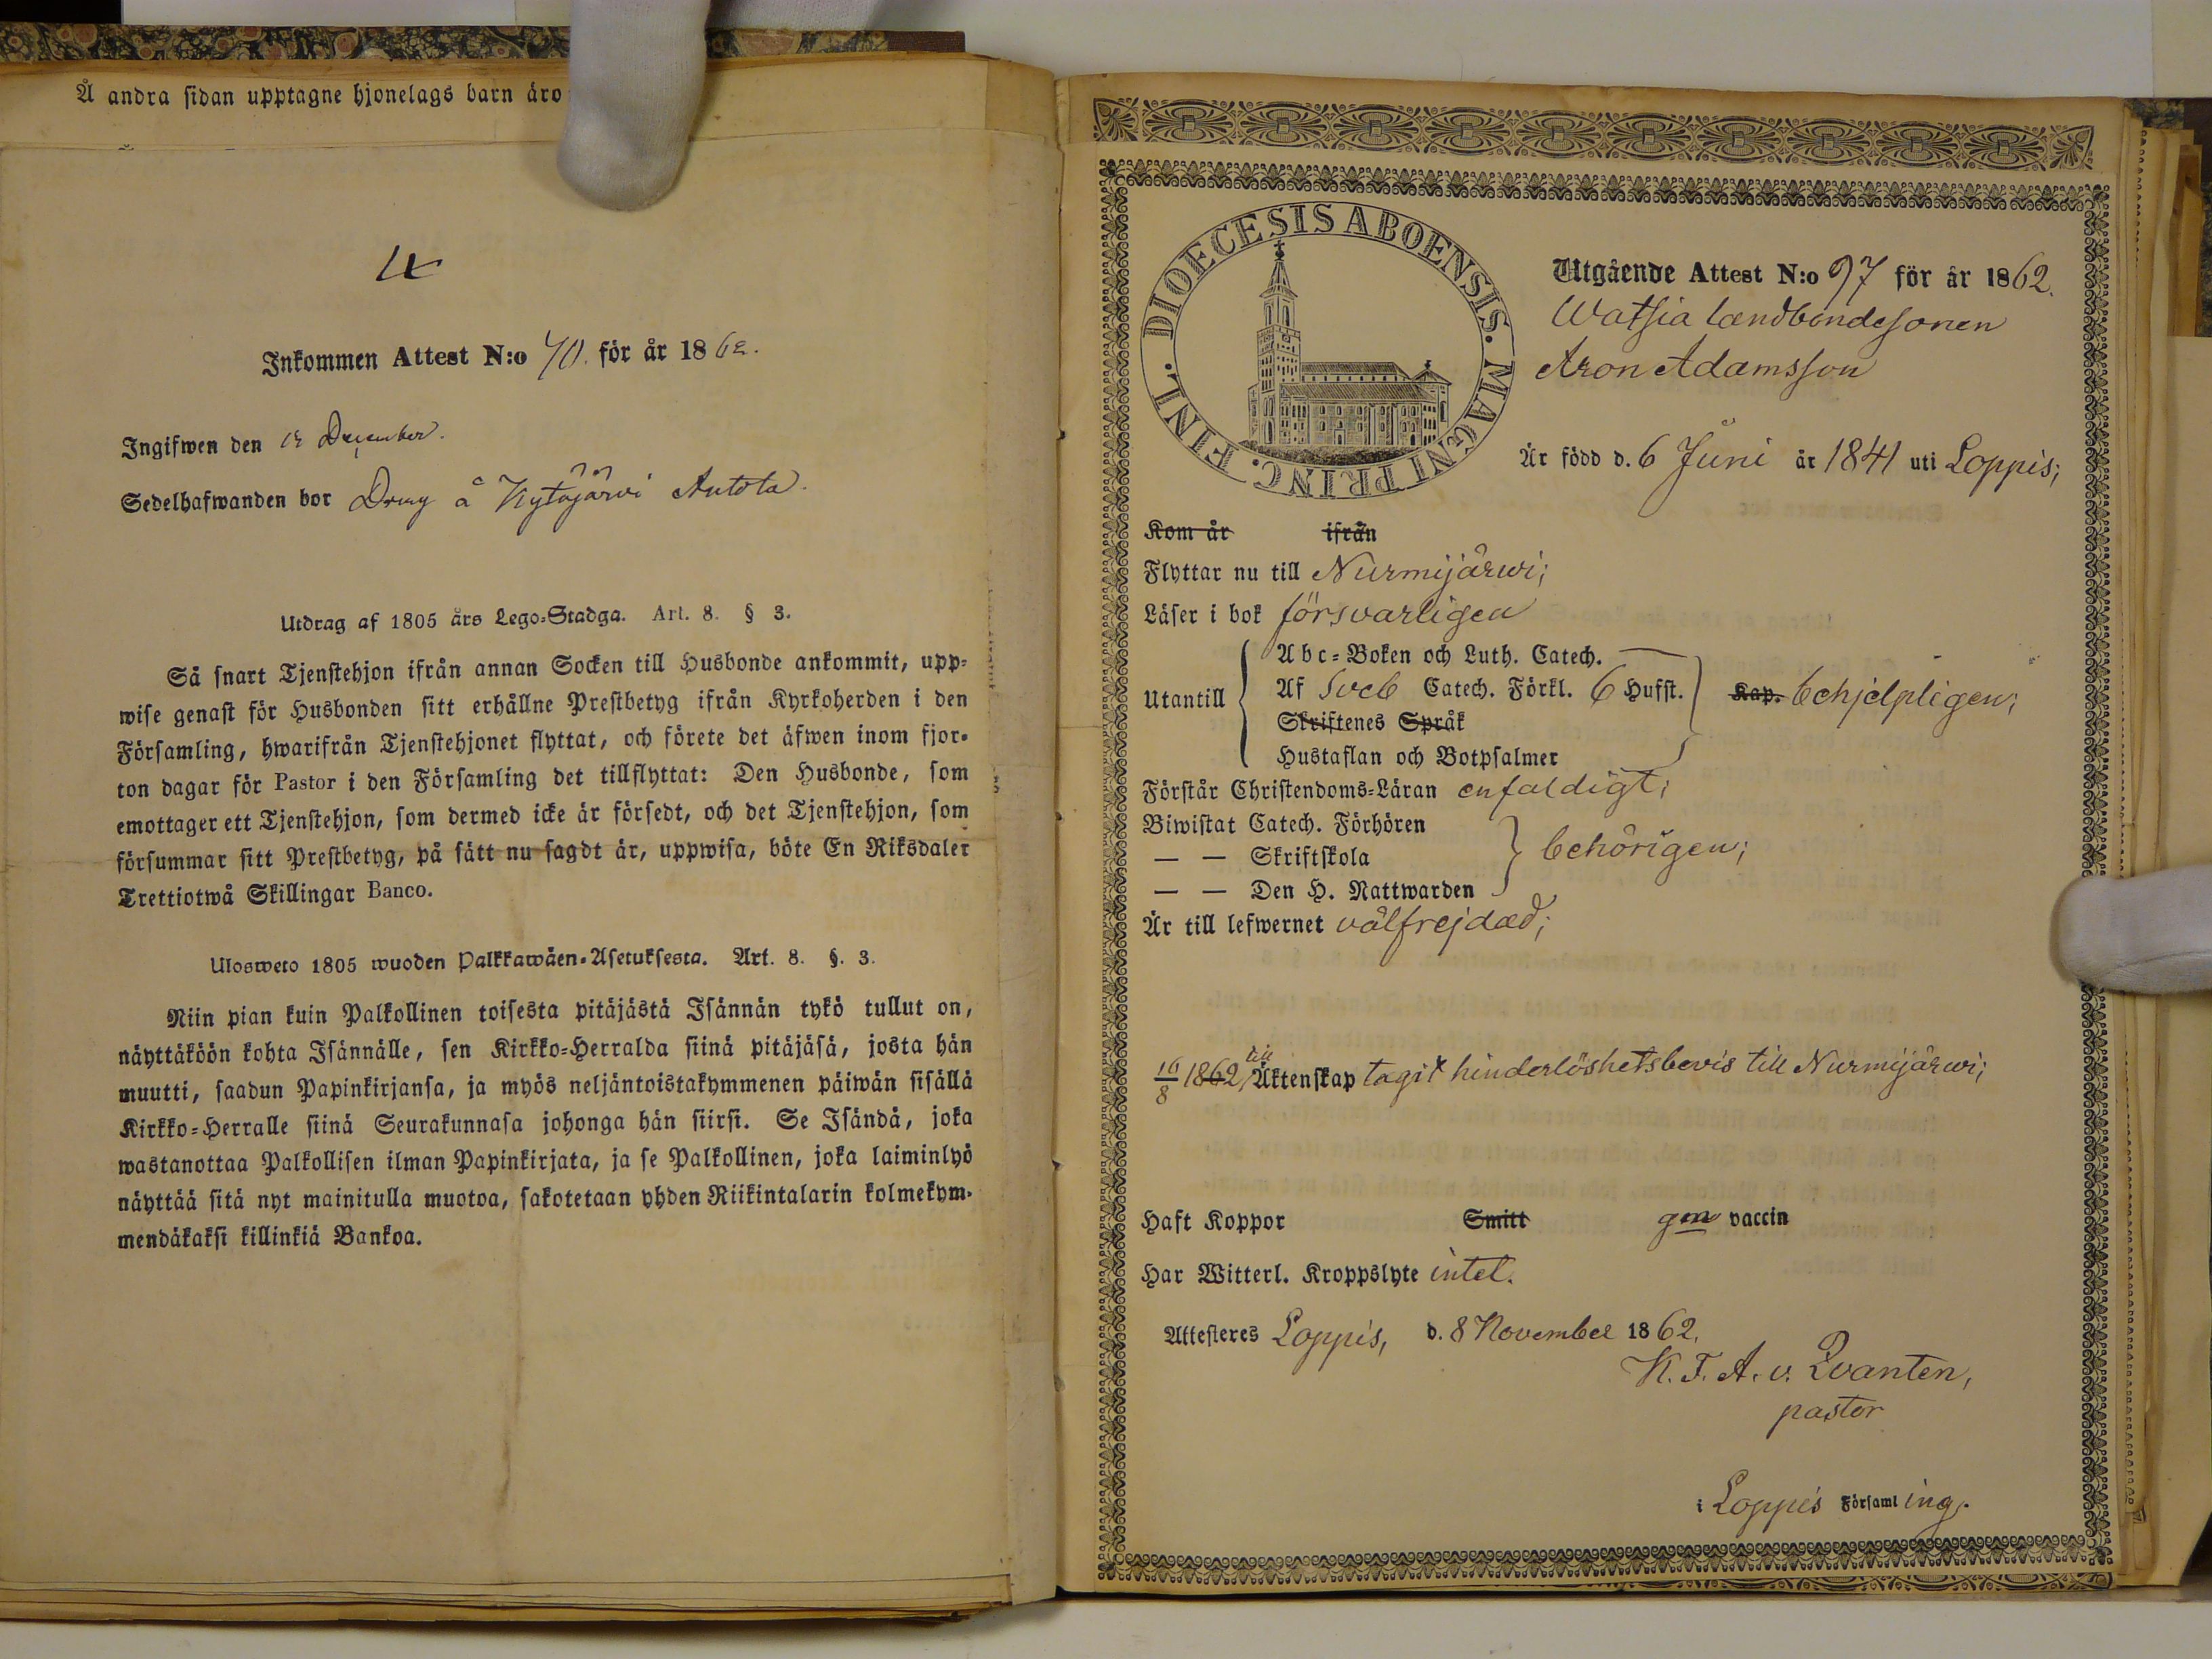 Å andra sidan upptagne hjonelags barn äro
Inkommen Attest N:o 70. för år 1862.
Ingifwen den 12 December.
Sedelhafwanden bor Dreng å Kytäjärvi Antola.
Utdrag af 1805 års Lego-Stadga. Art. 8. § 3.
Så snart Tjenstehjon ifrån annan Socken till Husbonde ankommit, upp-
wise genast för Husbonden sitt erhållne Prestbetyg ifrån Kyrkoherden i den
Församling, hwarifrån Tjenstehjonet flyttat, och förete det äfwen inom fjor-
ton dagar för Pastor i den Församling det tillflyttat: Den Husbonde, som
emottager ett Tjenstehjon, som dermed icke är försedt, och det Tjenstehjon, som
försummar sitt Prestbetyg, på sätt nu sagdt är, uppwisa, böte En Riksdaler
Trettiotwå Skillingar Banco.
Ulosweto 1805 wuoden Palkkawäen-Asetuksesta. Art. 8. §. 3.
Niin pian kuin Palkollinen toisesta pitäjästä Isännän tykö tullut on,
näyttäköön kohta Isännälle, sen Kirkko-Herralda siinä pitäjäsä, josta hän
muutti, saadun Papinkirjansa, ja myös neljäntoistakymmenen päiwän sisällä
Kirkko-Herralle siinä Seurakunnasa johonga hän siirsi. Se Isändä, joka
wastanottaa Palkollisen ilman Papinkirjata, ja se Palkollinen, joka laiminlyö
näyttää sitä nyt mainitulla muotoa, sakotetaan yhden Riikintalarin kolmekym-
mendäkaksi killinkiä Bankoa.
DIOECESIS ABOENSIS. MAGNI PRINC. FINL.
Utgående Attest N:o 97 för år 1862.
Watsia landbondesonen
Aron Adamsson
Är född d. 6 Juni år 1841 uti Loppis;
Kom år ifrån
Flyttar nu till Nurmijärwi;
Läser i bok försvarligen
Utantill
Abc-Boken och Luth. Catech.
Af Sveb Catech. Förkl. 6 Hufst. Kap. behjelpligen;
Skriftenes Språk
Hustaflan och Botpsalmer
Förstår Christendoms-Läran enfaldigt;
Biwistat Catech. Förhören
— — Skriftskola behörigen;
— — Den H. Nattwarden
Är till lefwernet välfrejdad;
16/8 1862 till Äktenskap tagit hinderlöshetsbevis till Nurmijärwi;
Haft Koppor Smitt gm vaccin
Har Witterl. Kroppslyte intet.
Attesteres Loppis, d. 8 November 1862.
K. F. A. v. Qvanten,
pastor
i Loppis Församling.